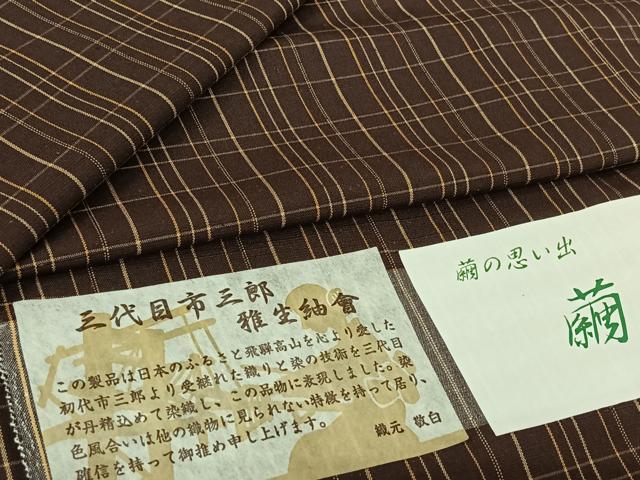 三代目市三郎
雅生紬會
この製品は日本のふるさと飛騨高山を心より愛した
初代市三郎より受継れた織りと染の技術を三代目
が丹精込めて染織し、この品物に表現しました。染
色風合いは他の織物に見られない特徴を持って居り、
確信を持って御推め申し上げます。
織元 敬白
繭の思い出
繭